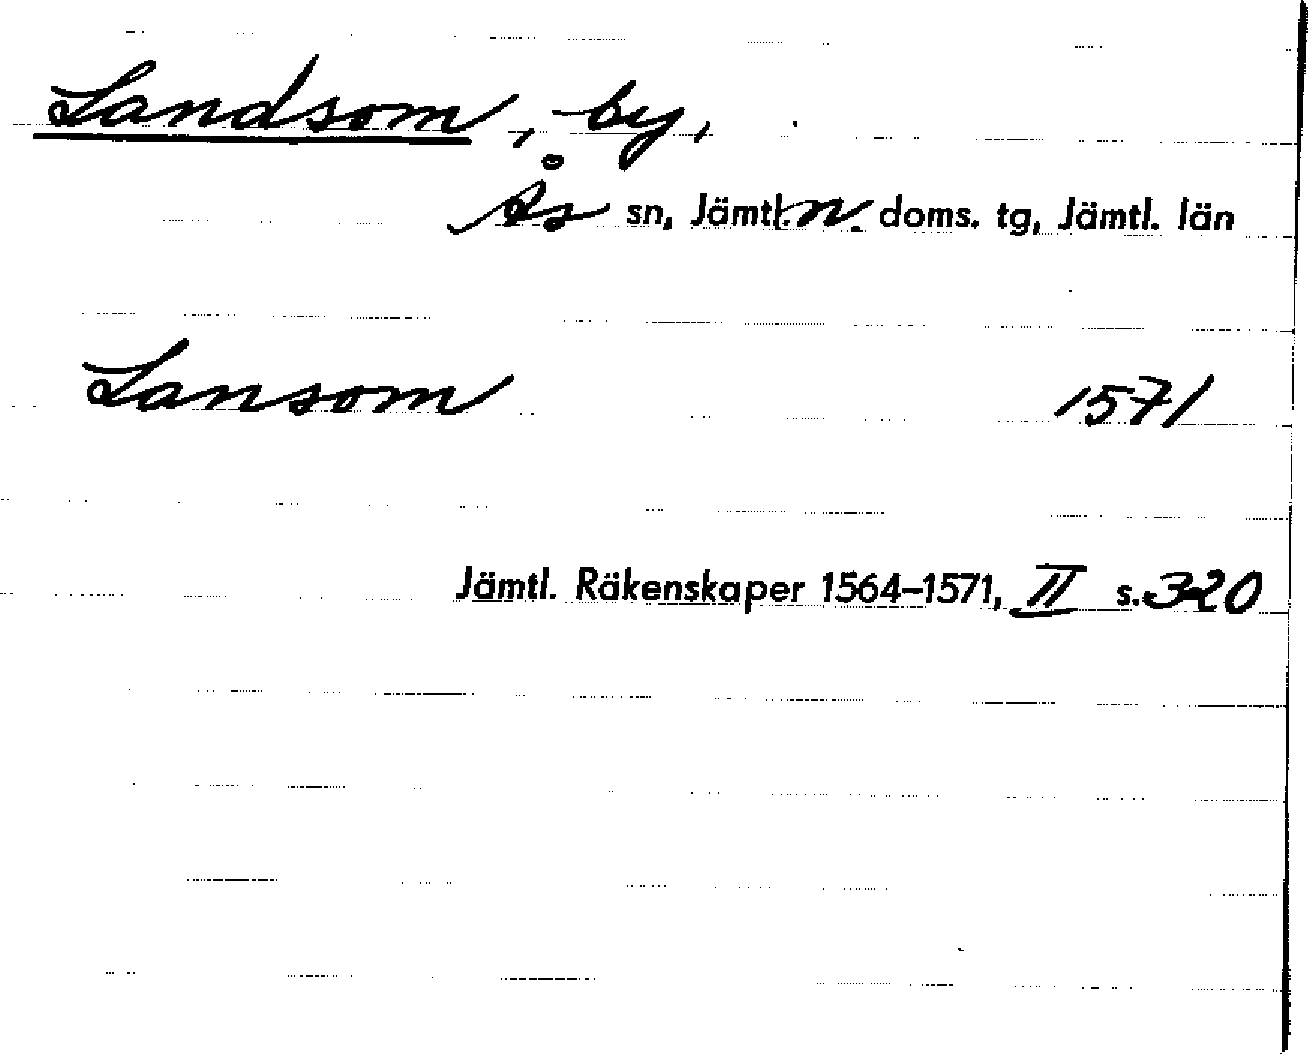 Landsom, by,
Ås sn, Jämtl. n. doms. tg, Jämtl. län
Lansom 1571
Jämtl. Räkenskaper 1564–1571, II s. 320